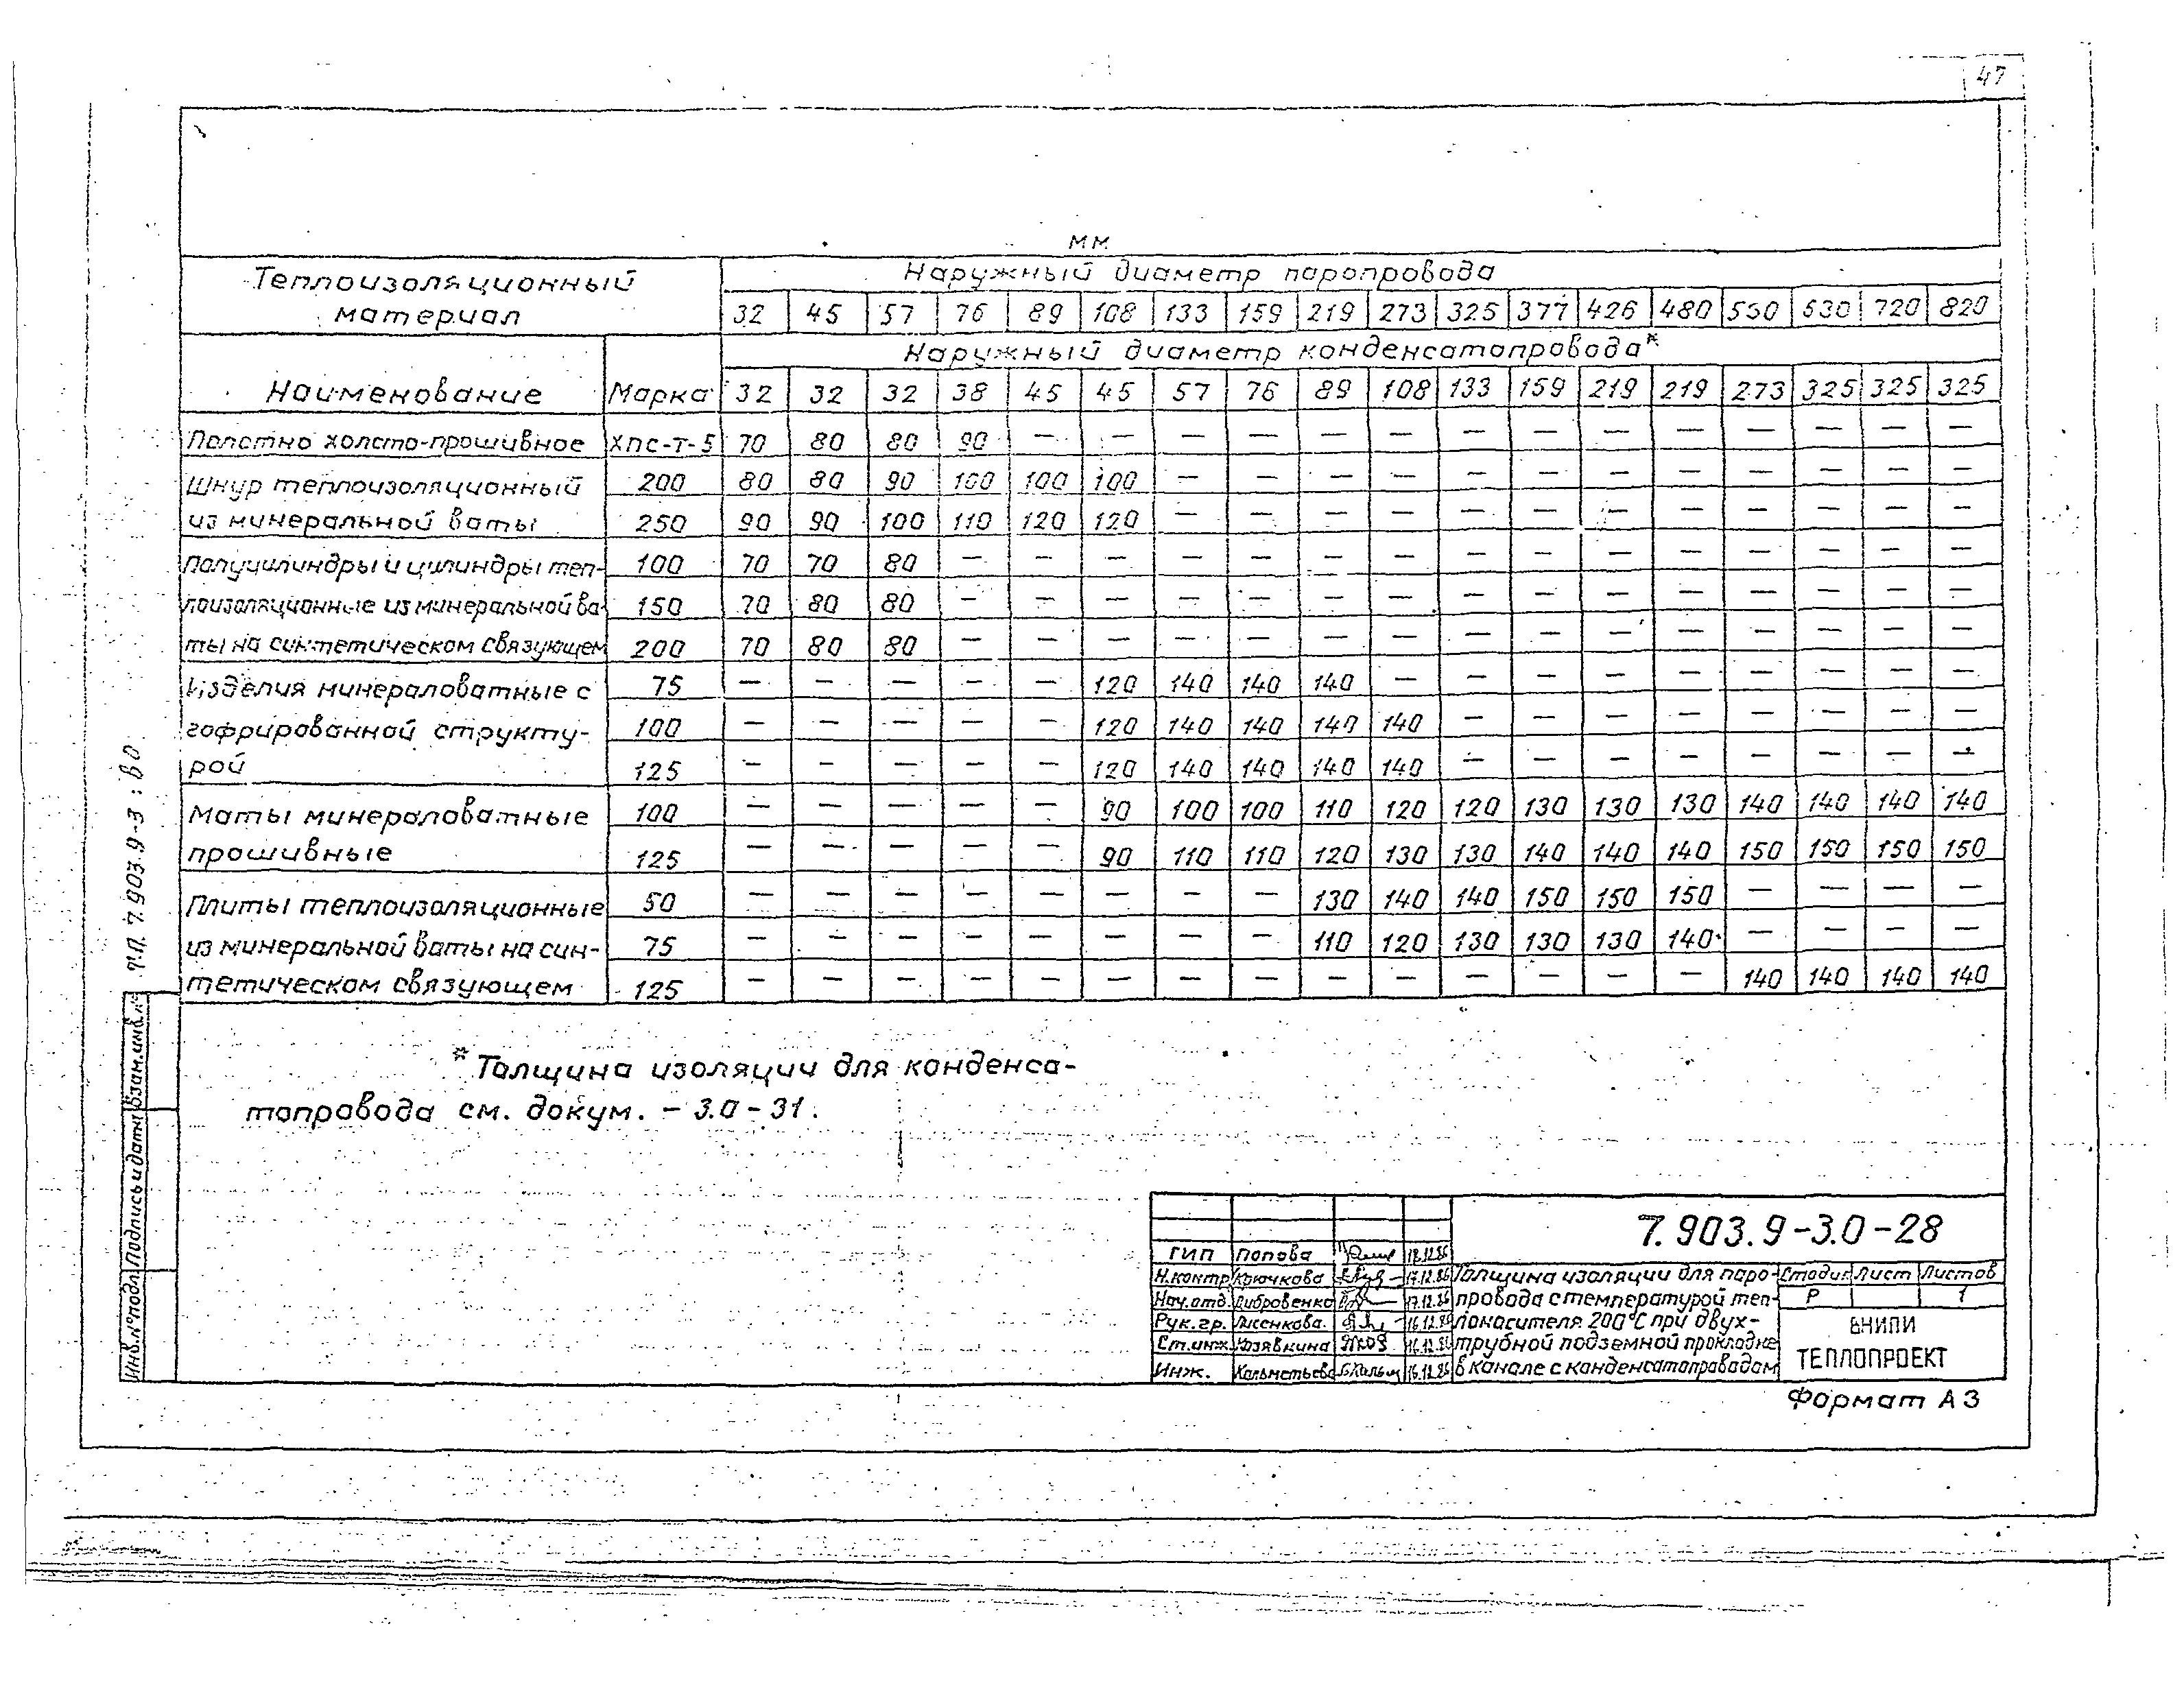 47
мм
Теплоизоляционный материал
Наружный диаметр паропровода
32 45 57 76 89 108 133 159 219 273 325 377 426 480 530 630 720 820
Наружный диаметр конденсатопровода*
Наименование Марка 32 32 32 38 45 45 57 76 89 108 133 159 219 219 273 325 325 325
Полотно холсто-прошивное ХПС-Т-5 70 80 80 90 — — — — — — — — — — — — — —
Шнур теплоизоляционный 200 80 80 90 100 100 100 — — — — — — — — — — — —
из минеральной ваты 250 90 90 100 110 120 120 — — — — — — — — — — — —
Полуцилиндры и цилиндры теп- 100 70 70 80 — — — — — — — — — — — — — — —
лоизоляционные из минеральной ва- 150 70 80 80 — — — — — — — — — — — — — — —
ты на синтетическом связующем 200 70 80 80 — — — — — — — — — — — — — — —
Изделия минераловатные с 75 — — — — — 120 140 140 140 — — — — — — — — —
гофрированной структу- 100 — — — — — 120 140 140 140 140 — — — — — — — —
рой 125 — — — — — 120 140 140 140 140 — — — — — — — —
Маты минераловатные 100 — — — — — 90 100 100 110 120 120 130 130 130 140 140 140 140
прошивные 125 — — — — — 90 110 110 120 130 130 140 140 140 150 150 150 150
Плиты теплоизоляционные 50 — — — — — — — — 130 140 140 150 150 150 — — — —
из минеральной ваты на син- 75 — — — — — — — — 110 120 130 130 130 140 — — — —
тетическом связующем 125 — — — — — — — — — — — — — — 140 140 140 140
* Толщина изоляции для конденса-
топровода см. докум. – 3.0 – 31.
Т.П. 7.903.9-3
Взам.инв.№
Подпись и дата
Инв.№ подл.
7.903.9-3.0-28
ГИП Попова 18.12.86
Н.контр Крючкова 17.12.86
Нач.отд. Дибровенко 17.12.86
Рук.гр. Лисенкова 16.12.86
Ст.инж. Козявкина 16.12.86
Инж. 16.12.86
Толщина изоляции для паро-
провода с температурой теп-
лоносителя 200°С при двух-
трубной подземной прокладке
в канале с конденсатопроводом
Стадия Лист Листов
Р 1
ВНИПИ
ТЕПЛОПРОЕКТ
Формат А3